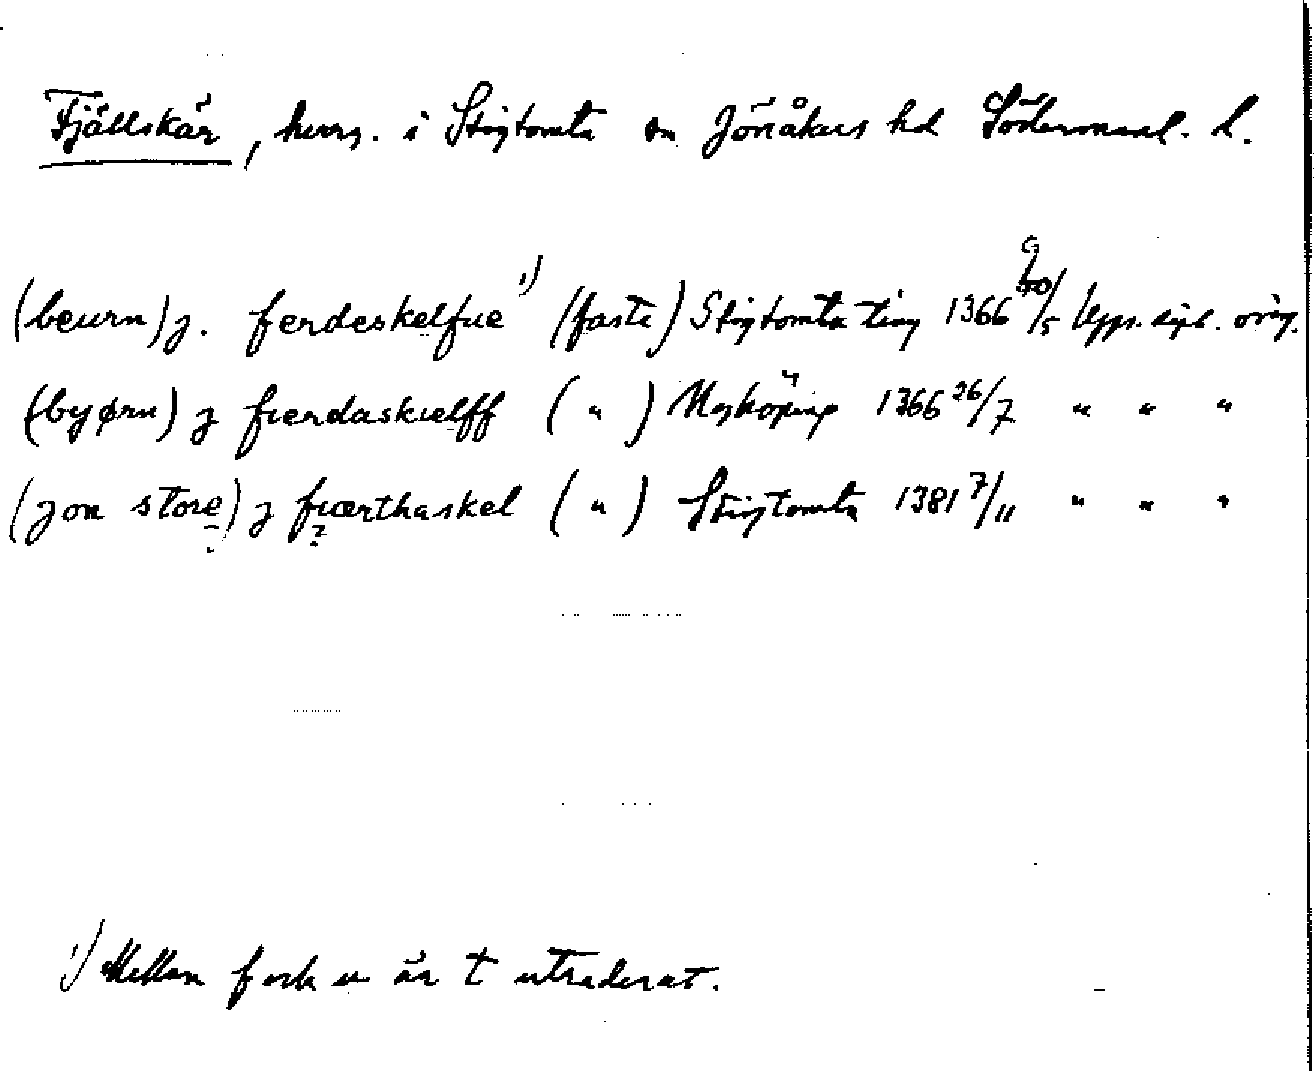 Fjällskär, herrg. i Stigtomta sn Jönåkers hd Södermanl. l.
(beurn) j. ferdeskelfue ¹) (faste) Stigtomta ting 1366 9/5 Upps. dipl. orig.
(byørn) j fierdaskielff ( " ) Nyköping 1366 26/7 " " "
(jon store) j fiærthaskel ( " ) Stigtomta 1381 7/11 " " "
¹) Mellan f och u är t utraderat.